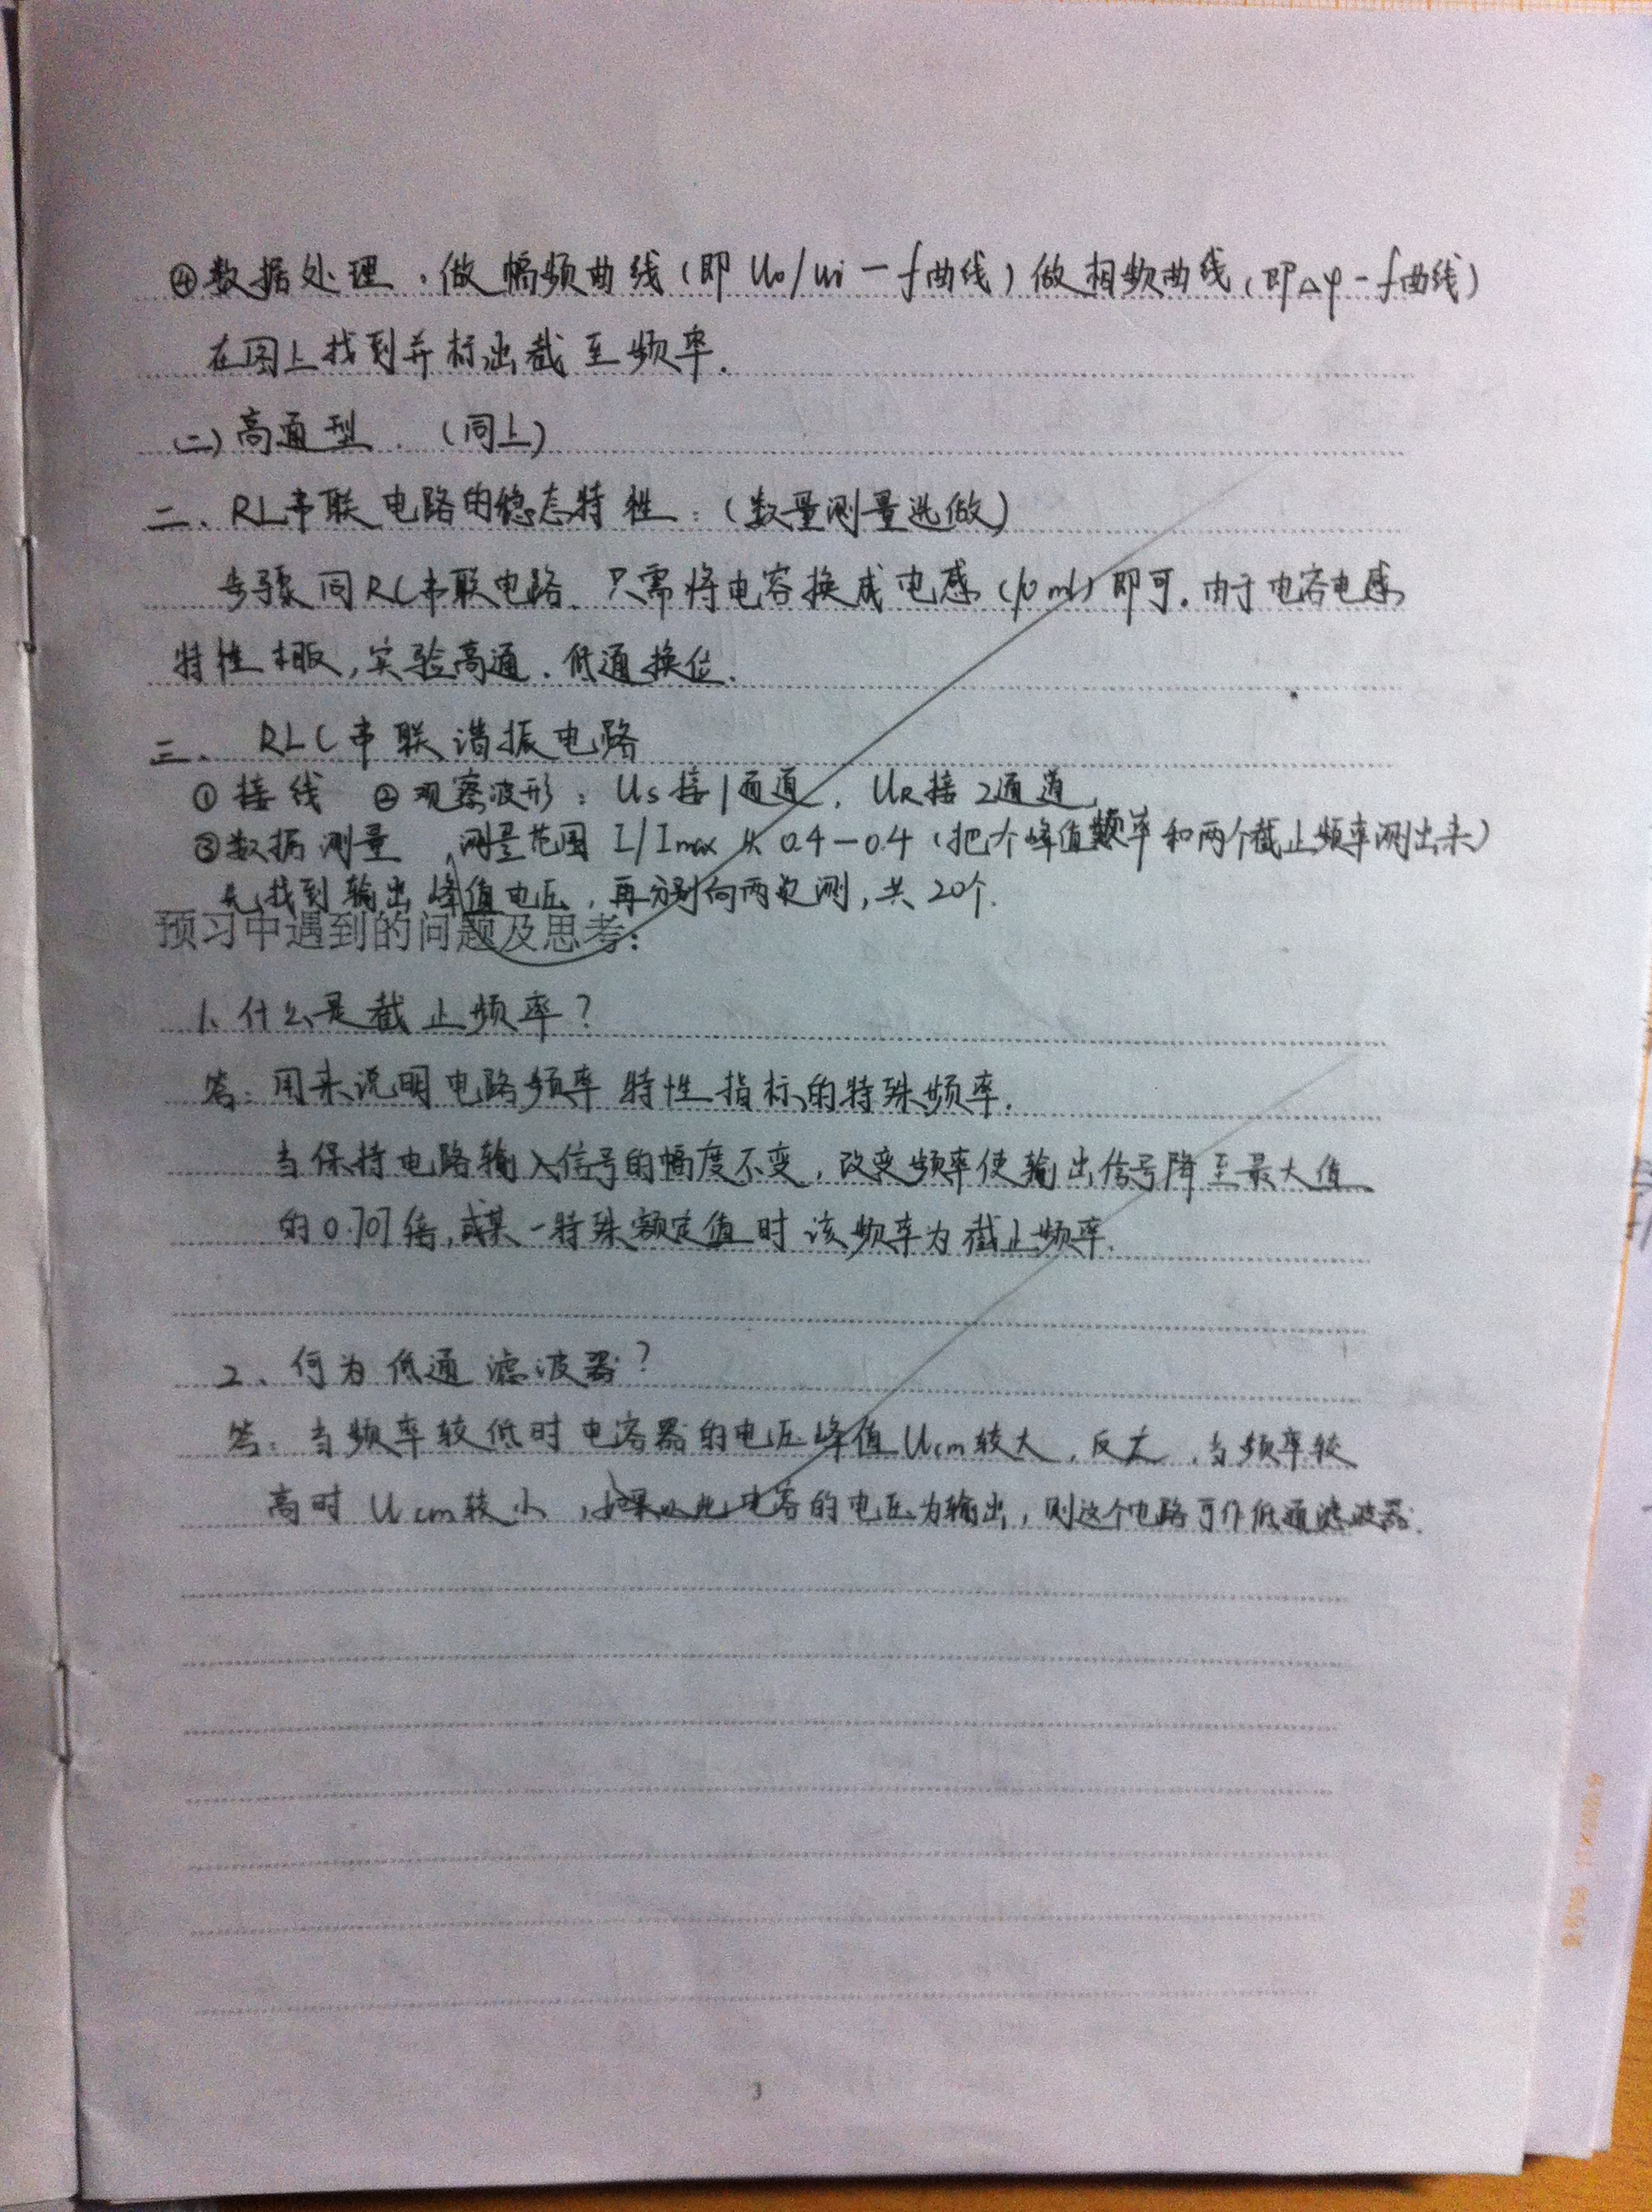 ④数据处理.做幅频曲线(即Uo/ui-f曲线)做相频曲线(即△φ-f曲线)
在图上找到并标出截至频率.
(二)高通型.(同上)
二、RL串联电路的稳态特性:(数量测量选做)
步骤同RC串联电路.只需将电容换成电感(10mH)即可.由于电容电感
特性相反,实验高通.低通换位.
三、RLC串联谐振电路
①接线 ②观察波形:Us接1通道,UR接2通道
③数据测量 测量范围 I/Imax从0.4-0.4(把个峰值频率和两个截止频率测出来)
先找到输出峰值电压,再分别向两边测,共20个.
预习中遇到的问题及思考:
1、什么是截止频率?
答:用来说明电路频率特性指标的特殊频率.
当保持电路输入信号的幅度不变,改变频率使输出信号降至最大值
的0.707倍,或某一特殊额定值时该频率为截止频率.
2、何为低通滤波器?
答:当频率较低时电容器的电压峰值Ucm较大,反之,当频率较
高时Ucm较小,如果以此电容的电压为输出,则这个电路可作低通滤波器.
3